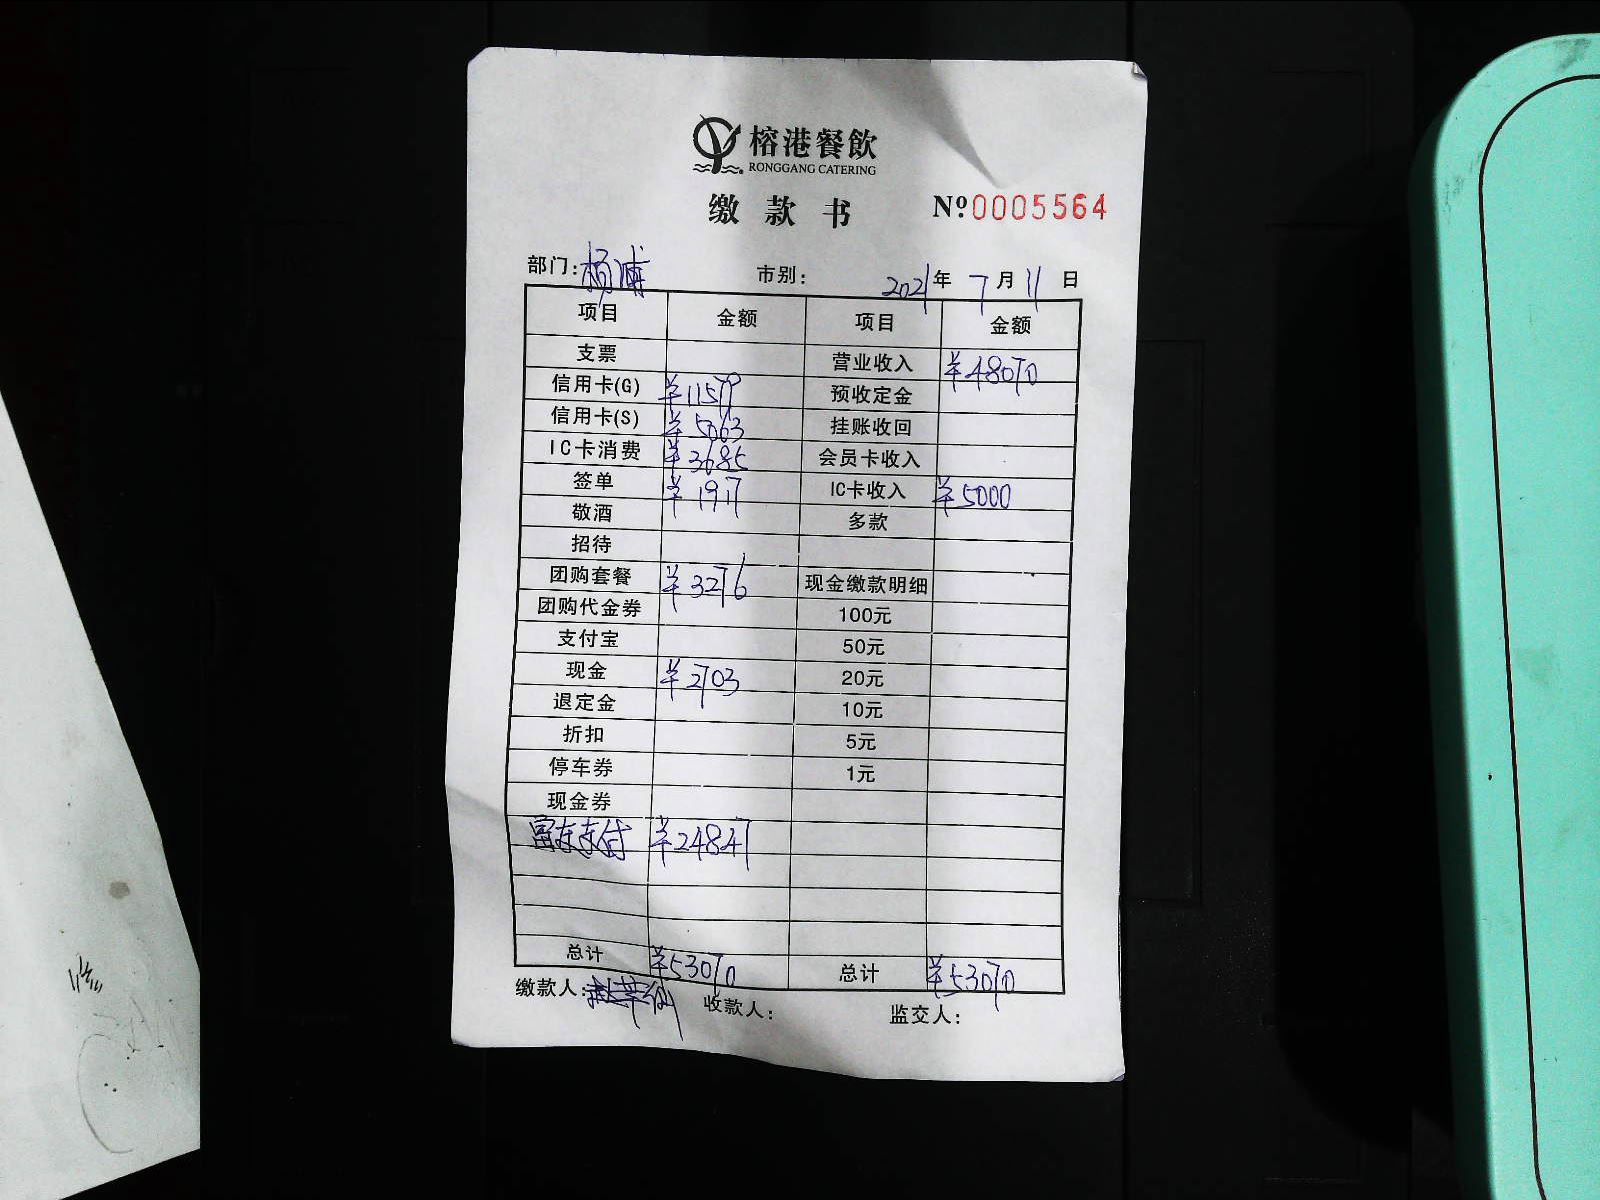 榕港餐飲
RONGGANG CATERING
缴款书 №0005564
部门:杨浦 市别: 2021年 7月11日
项目 金额 项目 金额
支票 营业收入 ¥48070
信用卡(G) ¥11579 预收定金
信用卡(S) ¥5063 挂账收回
IC卡消费 ¥3685 会员卡收入
签单 ¥1917 IC卡收入 ¥5000
敬酒 多款
招待
团购套餐 ¥3276 现金缴款明细
团购代金券 100元
支付宝 50元
现金 ¥2703 20元
退定金 10元
折扣 5元
停车券 1元
现金券
富友支付 ¥24847
总计 ¥53070 总计 ¥53070
缴款人: 收款人: 监交人: